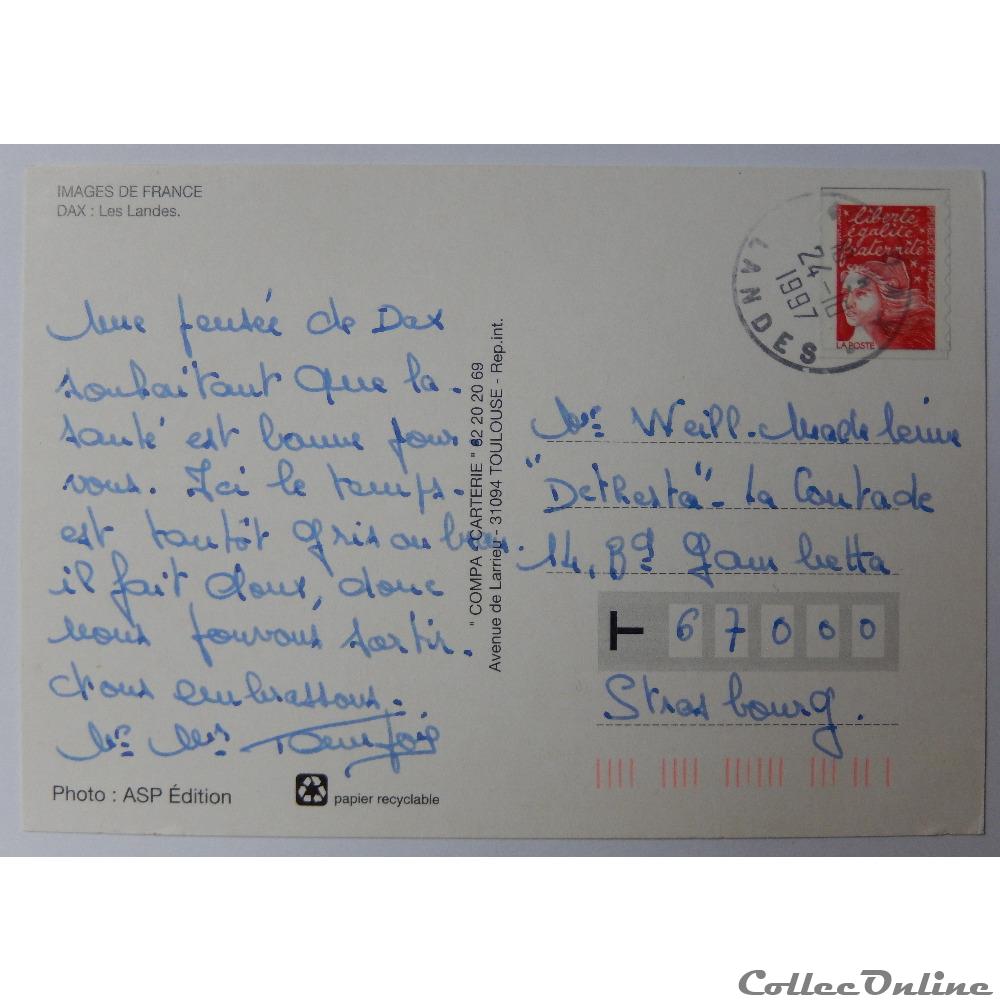 IMAGES DE FRANCE
DAX : Les Landes.
Une pensée de Dax
souhaitant que la
santé est bonne pour
vous. Ici le temps
est tantôt gris ou beau.
il fait doux, donc
nous pouvons sortir.
Nous embrassons.
Mr Mme
Photo : ASP Édition
papier recyclable
" COMPA - CARTERIE " 62 20 20 69
Avenue de Larrieu - 31094 TOULOUSE - Rep.int.
LANDES
24-10
1997
liberté
égalité
fraternité
RÉPUBLIQUE FRANÇAISE
LA POSTE
Weill-Madeleine
"Dethesta" - La Contade
14, Bd Gambetta
T 67000
Strasbourg.
CollecOnline